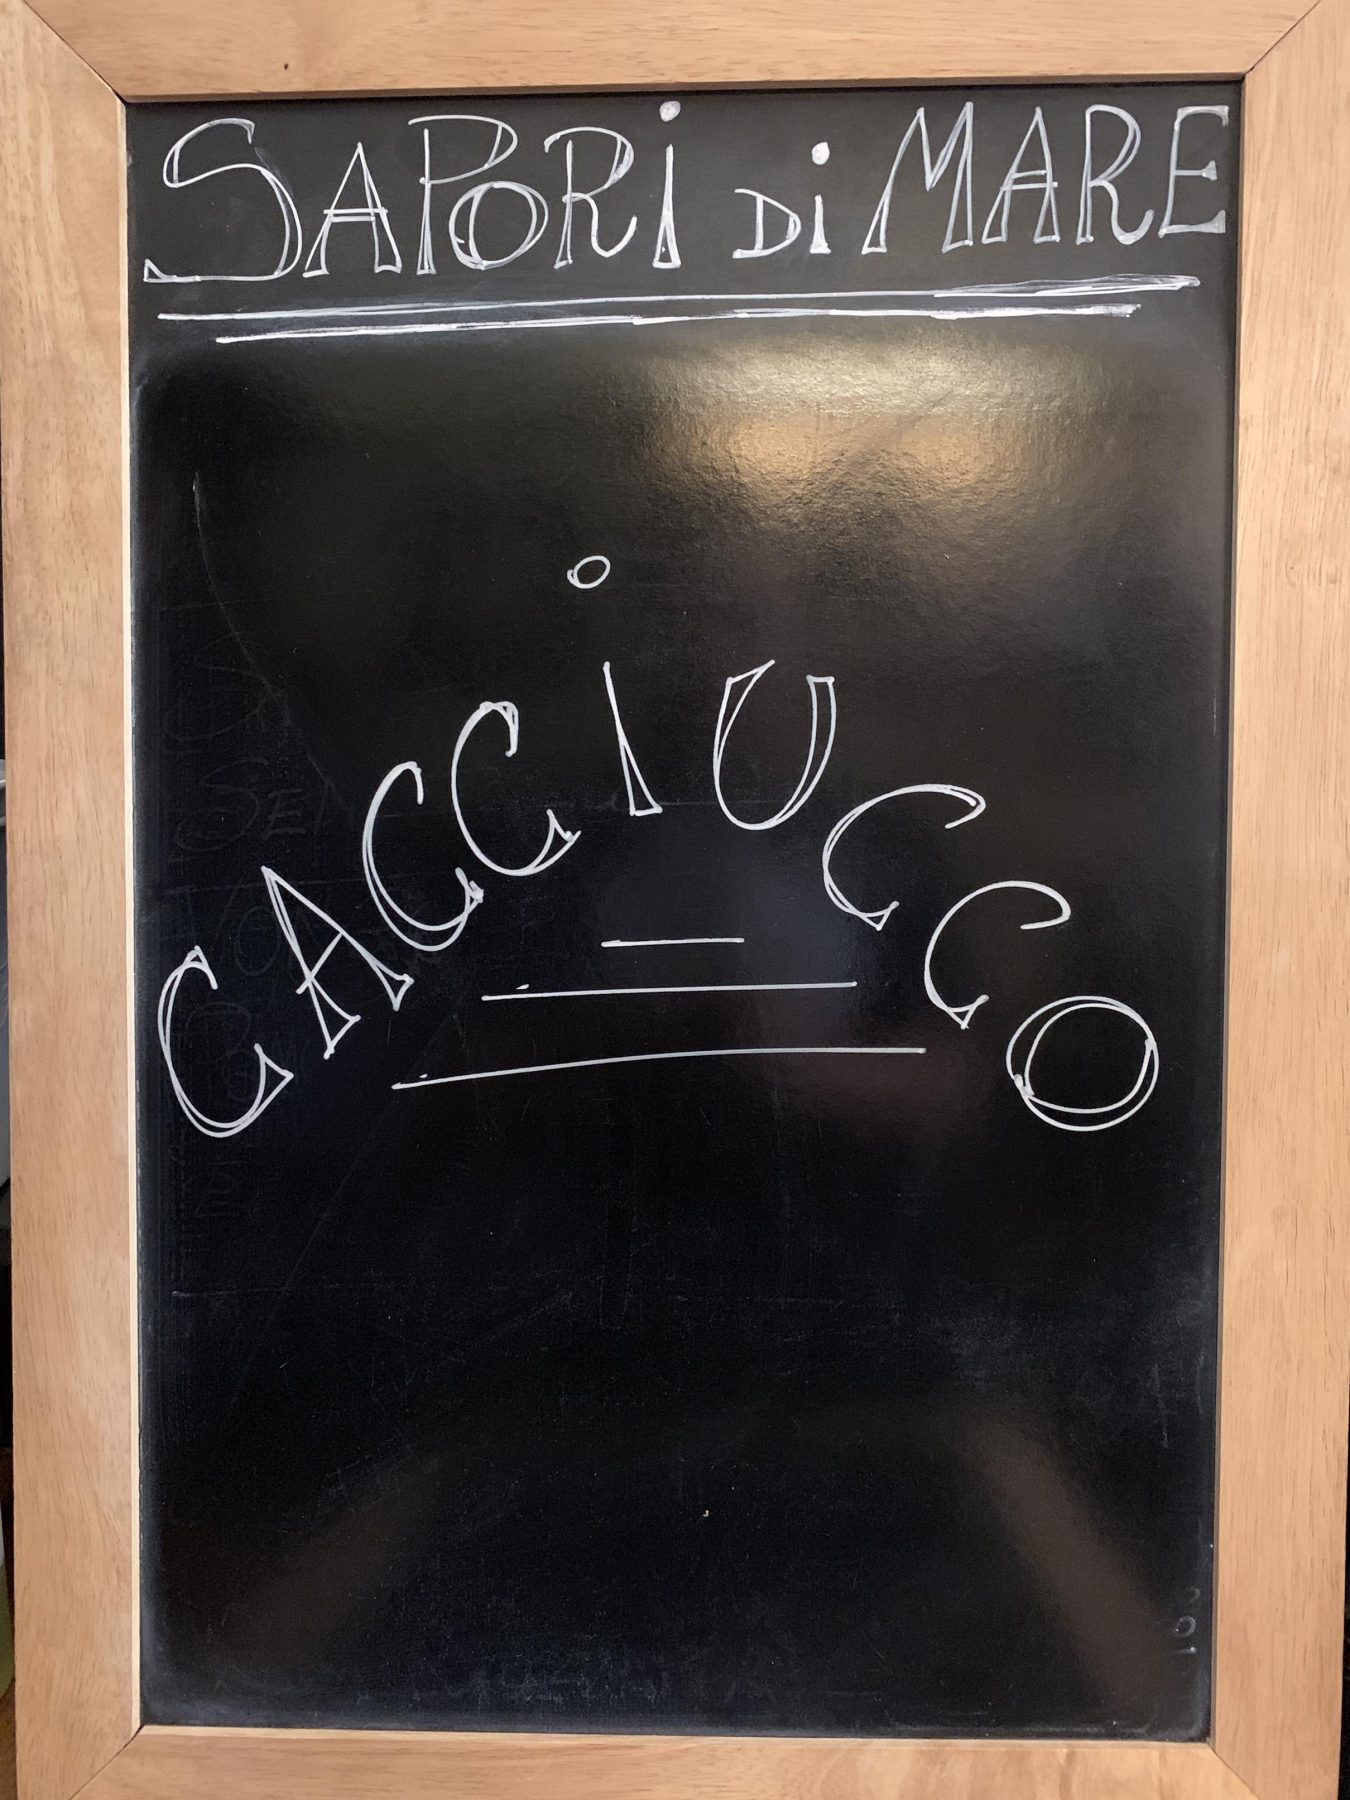 SAPORi Di MARE
CACCiUCCO